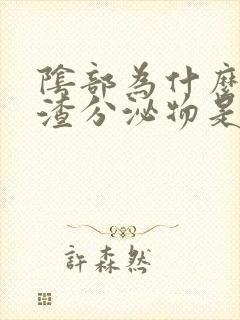 陰部為什麼
渣分泌物是
許森然